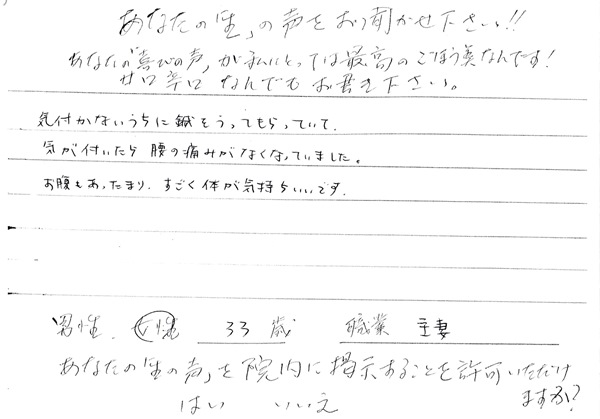 あなたの「生」の声をお聞かせ下さい!!
あなたの「喜びの声」が私にとっては最高のごほう美なんです!
甘口辛口なんでもお書き下さい。
気付かないうちに鍼をうってもらっていて、
気が付いたら腰の痛みがなくなっていました。
お腹もあったまり、すごく体が気持ちいいです。
男性. 女性 33 歳 職業 主妻
あなたの「生の声」を院内に掲示することを許可いただけ
ますか?
はい いいえ